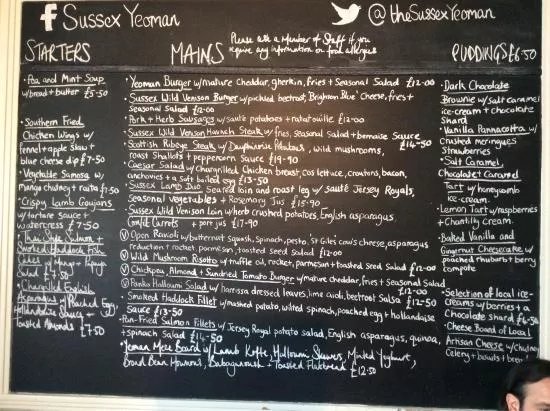 f Sussex Yeoman
@theSussexYeoman
Please ask a Member of Staff if you
require any information on food allergies
STARTERS
MAINS
PUDDINGS £6.50
• Pea and Mint Soup
w/bread + butter £5.50
• Southern Fried
Chicken Wings w/
fennel + apple slaw +
blue cheese dip £7.50
• Vegetable Samosa w/
mango chutney + raita £7.50
• Crispy Lamb Goujons
w/tartare sauce +
watercress £7.50
• Thai Style Salmon +
Smoked Haddock Fish
Salad £7.50
• Chargrilled English
Asparagus w/Poached Egg
Hollandaise Sauce +
Toasted Almonds £7.50
• Yeoman Burger w/mature cheddar, gherkin, fries + Seasonal Salad £12.00
• Sussex Wild Venison Burger w/pickled beetroot, Brighton Blue Cheese, fries +
seasonal Salad £12.00
• Pork + Herb Sausages w/ sauté potatoes + ratatouille £12.00
• Sussex Wild Venison Haunch Steak w/ fries, seasonal salad + bernaise Sauce £14.50
• Scottish Ribeye Steak w/ Dauphinoise Potatoes, wild mushrooms,
roast Shallots + peppercorn Sauce £19.90
• Caesar Salad w/ Chargrilled Chicken breast, cos lettuce, croutons, bacon,
anchovies + a soft boiled egg £13.50
• Sussex Lamb Duo Seared loin and roast leg w/ sauté Jersey Royals,
Seasonal vegetables + Rosemary Jus £15.90
• Sussex Wild Venison Loin w/herb crushed potatoes, English asparagus,
Confit Carrots + port jus £17.90
(V) Open Ravioli w/butternut squash, spinach, pesto, St Giles cows cheese, asparagus
reduction + rocket, parmesan, toasted seed Salad £12.00
(V) Wild Mushroom Risotto w/ truffle oil, rocket, parmesan + toasted Seed Salad £12.00
(V) Chickpea, Almond + Sundried Tomato Burger w/mature cheddar, fries + Seasonal Salad £12.00
(V) Panko Halloumi Salad w/ harissa dressed leaves, lime aioli, beetroot Salsa £12.50
• Smoked Haddock Fillet w/mashed potato, wilted spinach, poached egg + hollandaise
Sauce £13.50
• Pan-Fried Salmon Fillets w/ Jersey Royal potato salad, English asparagus, quinoa,
+ spinach salad £14.50
• Yeoman Meze Board w/ Lamb Kofte, Halloumi Skewers, Minted Yoghurt,
Broad Bean Houmous, Babaganoush + Toasted Flatbread £12.50
• Dark Chocolate
Brownie w/ Salt caramel
ice-cream + chocolate
Shard
• Vanilla Pannacotta w/
Crushed meringues
Strawberries
• Salt Caramel,
Chocolate + Caramel
Tart w/ honeycomb
ice-cream.
• Lemon Tart w/raspberries
+ Chantilly cream.
• Baked Vanilla and
Gingernut Cheesecake w/
poached rhubarb + berry
compote
• Selection of local ice-
creams w/ berries + a
Chocolate shard £6.50
• Cheese Board of Local
Artisan Cheese w/chutney
Celery + bowls +